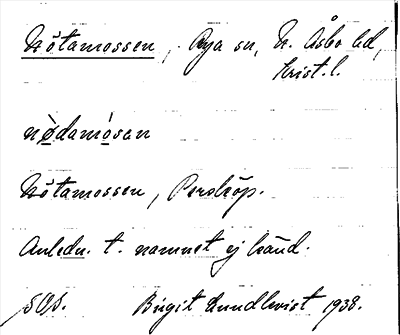 Nötamossen, Rya sn, N. Åsbo hd,
Krist. l.
nø̱damó̱san
Nötamossen, Perstöp.
Anledn. t. namnet ej känd.
SOs. Birgit Lundkvist 1938.